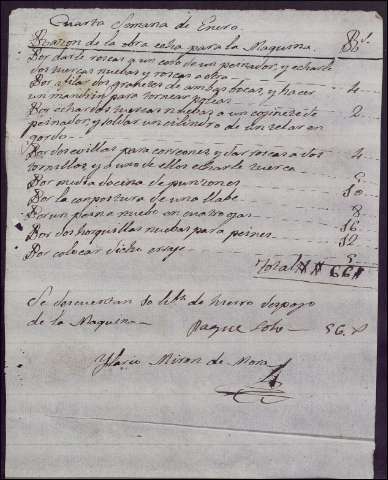 Quarta Semana de Enero
Razon de la obra echa para la Maquina. Rs.
Por darle roscas a un coso de un peinador, y echarle
dos tuercas nuebas y roscas a otro 4
Por afilar dos de ambas bocas, y hacer
un mandril para tornear 2
Por echar dos tuercas nuebas a un coginete de
peinador, y soldar un cilindro de un telar en
gordo
Por dos evillas para correones, y dar roscas a dos
tornillos, y a uno de ellos echarle tuerca 4
Por media docena de punzones 5
Por la conpostura de una llabe 10
Por un peine nuebo en cuatro ojas 8
Por dos horquillas nuebas para peines 16
Por colocar dicho 12
5
Total 66
Se descuentan 10 de hierro despojo
de la Maquina
Pague solo 56
Ylario Miron de Mora